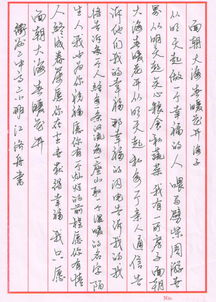 面朝大海春暖花开 海子
从明天起做一个幸福的人 喂马劈柴周游世
界从明天起关心粮食和蔬菜我有一所房子面朝
大海春暖花开从明天起和每个亲人通信告
诉他们我的幸福那幸福的闪电告诉我的我
诉每个人给每条河每一座山取一个温暖的名字陌
生人我也为你祝福愿你有一个灿烂的前程愿你有情
人终成眷属愿你在尘世获得幸福 我只愿
面朝大海春暖花开
二中